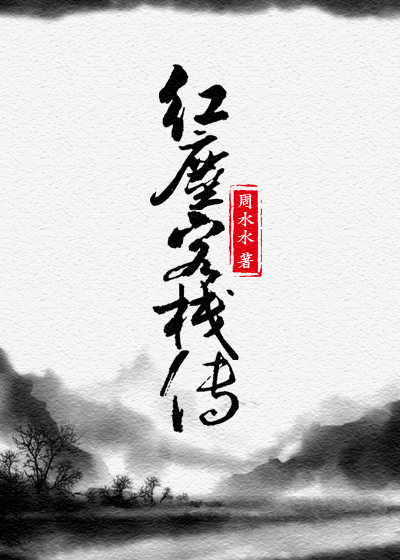 红尘客栈传
周水水 著